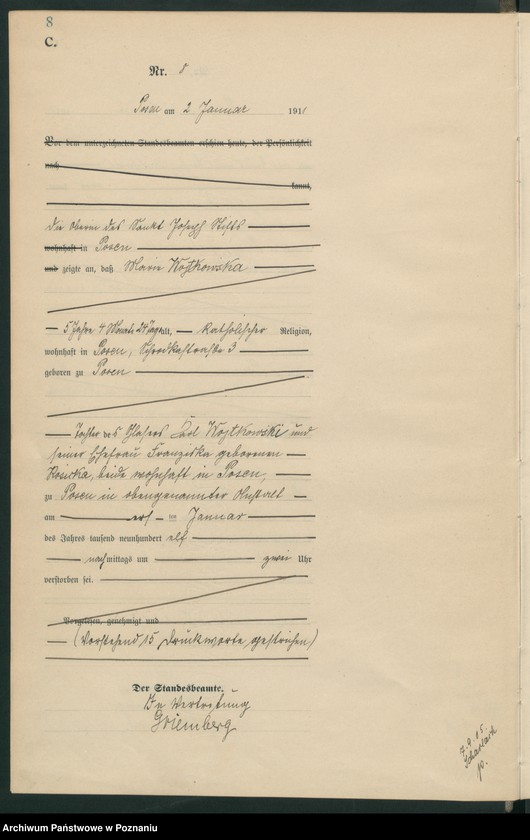 8
C.
Nr. 8
Posen am 2 Januar 1911
Vor dem unterzeichneten Standesbeamten erschien heute, der Persönlichkeit
nach
kannt,
die Oberin des Sankt Joseph Stifts
wohnhaft in Posen
und zeigte an, daß Marie Wojtkowska
5 Jahre 4 Monate 24 Tage alt, katholischer Religion,
wohnhaft in Posen, Schrodkastraße 3
geboren zu Posen
Tochter des Glasers Karl Wojtkowski und
seiner Ehefrau Franziska geborenen
beide wohnhaft in Posen,
zu Posen in obengenannter Anstalt
am ersten Januar
des Jahres tausend neunhundert elf
nachmittags um zwei Uhr
verstorben sei.
Vorgelesen, genehmigt und
(Vorstehend 15 Druckworte gestrichen)
Der Standesbeamte.
In Vertretung
7.9.05
Scharlach
Archiwum Państwowe w Poznaniu